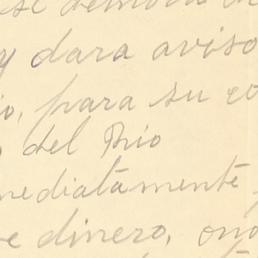 se
y dara aviso
io, para su co
del Rio
mediatamente
e dinero, ono